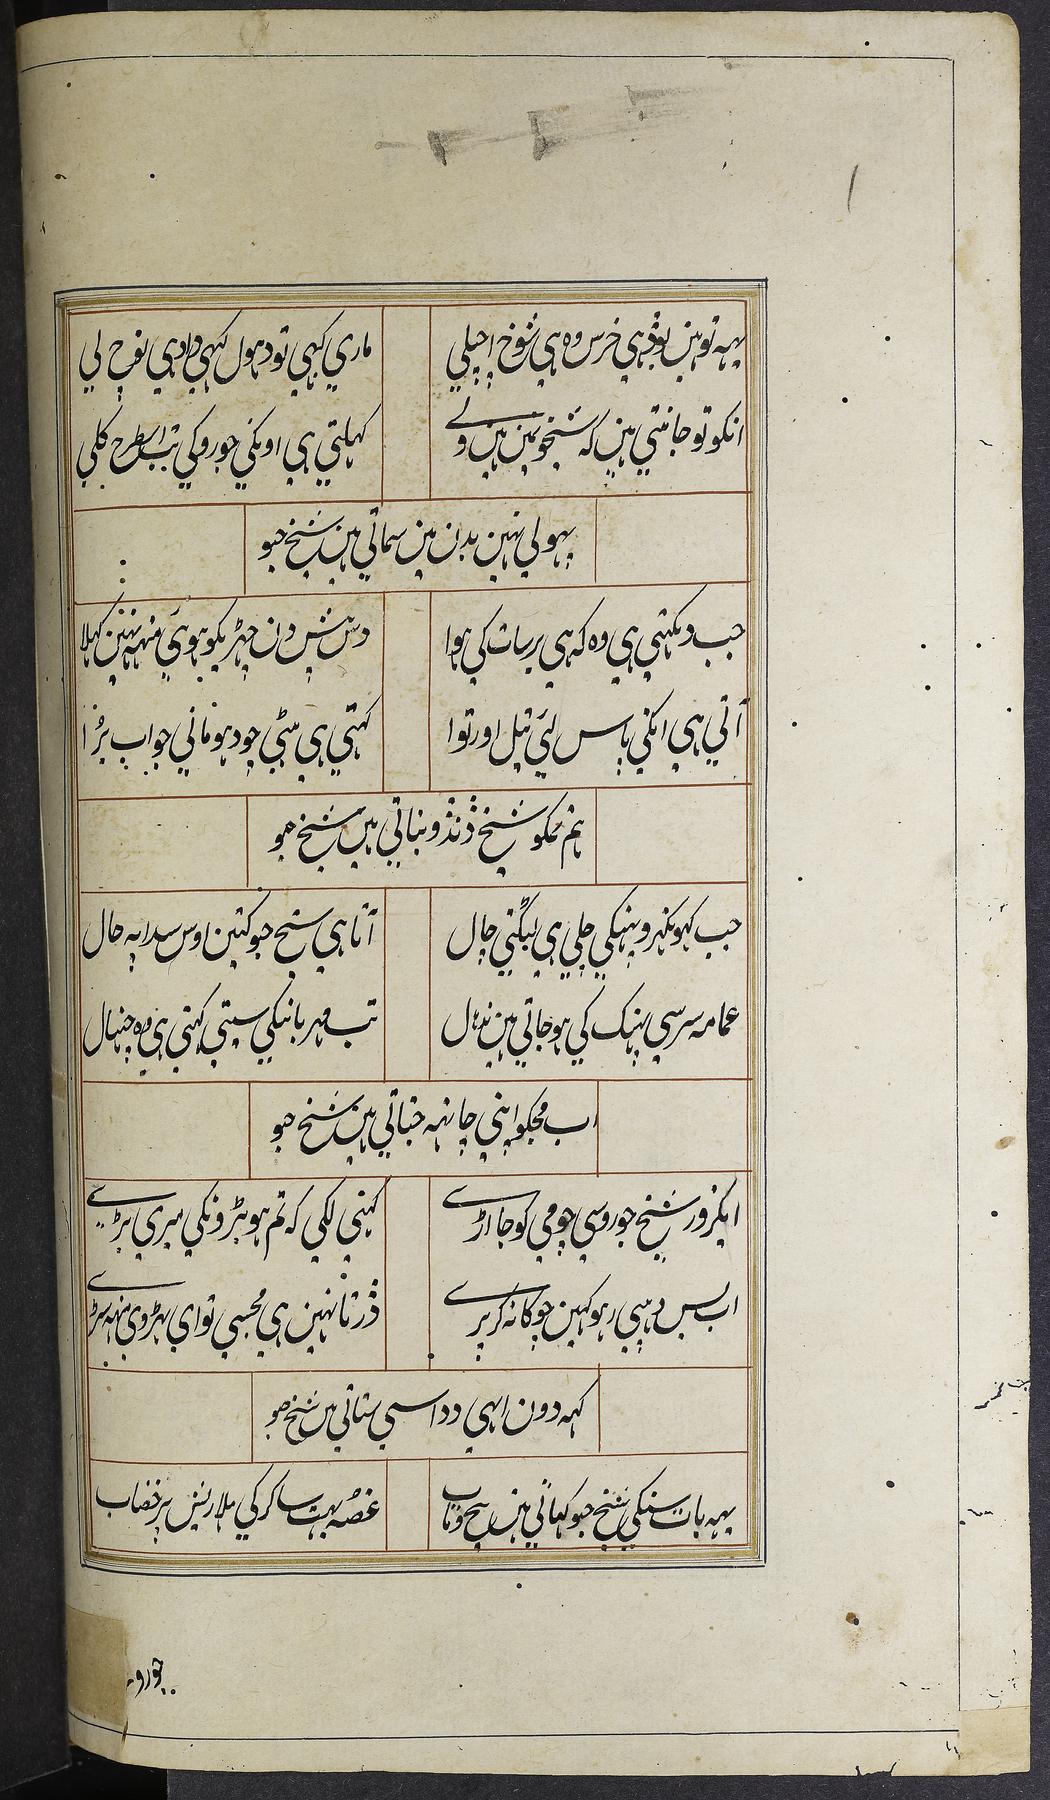 یہہ تو ہین بوڈہی خرس وہ ہی شوخ اچپلی
ماری کبہی تو دہول کبہی داڈہی نوچ لی
انکو تو جانتی ہین کہ شیخو ہین وے
کہلتی ہی اونکی جورو کی تب اسطرح کلی
پہولی نہین بدن مین سماتی ہین شیخ جیو
جب دیکہتی ہی وہ کہ ہی برسات کی ہوا
دس بیس دن جہڑیکو ہوئی مینہہ نہین کہلا
آتی ہی انکی پاس لئی تیل اور توا
کہتی ہی بیٹی جو دہو مانی جواب بڑا
ہم تمکو شیخ ڈنڈو بناتی ہین شیخ جیو
جب کہو نہر و پہنکی چلی ہی لٹکتی چال
آتا ہی شیخ جیو کتین اوس سدا یہ حال
عمامہ سر سی پہینک کی ہو جاتی ہین نڈہال
تب مہربانیکی سیتی کہتی ہی وہ چہنال
اب مجکو اپنی چانہہ جتاتی ہین شیخ جیو
ایکروز شیخ جورو سی چومی کو جا اڑے
کہنی لگی کہ تم ہو بڑونکی میری بڑے
اب بس وہیی رہو کہین چوکا نہ گر پڑے
ڈرتا نہین ہی مجہسی تو ای بہڑوی منہہ سڑے
کہہ دون ابہی ددا سی ستاتی ہین شیخ جیو
یہہ بات سنکی شیخ جیو کہاتی ہین پیچ و تاب
غصہ بہت سا کرکی ملا ریش پر خضاب
جورو